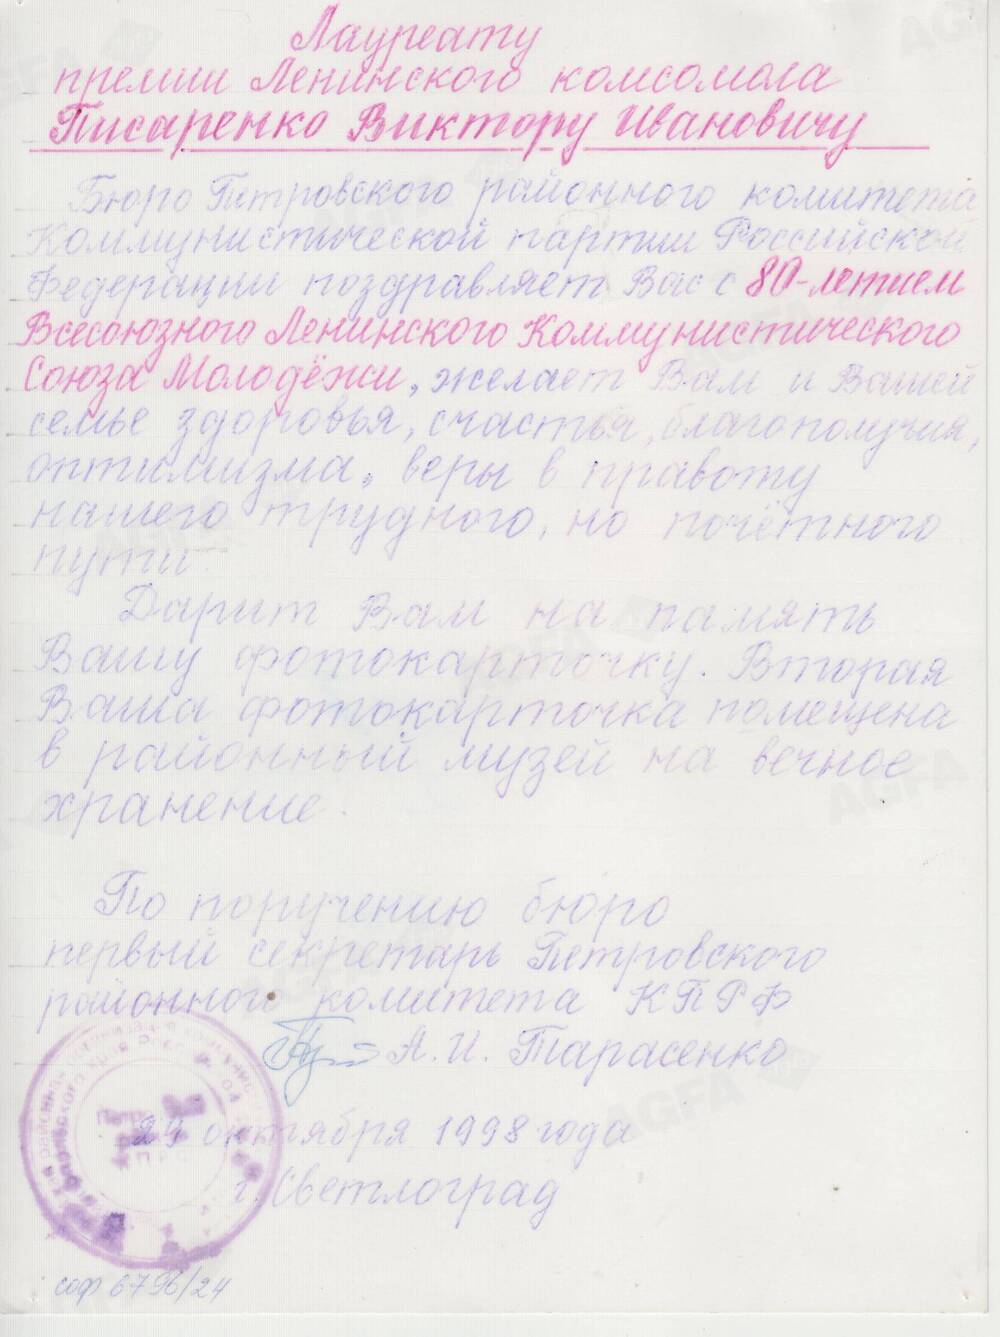 Лауреату
премии Ленинского комсомола
Писаренко Виктору Ивановичу
Бюро Петровского районного комитета
Коммунистической партии Российской
Федерации поздравляет Вас с 80-летием
Всесоюзного Ленинского Коммунистического
Союза Молодёжи, желает Вам и Вашей
семье здоровья, счастья, благополучия,
оптимизма, веры в правоту
нашего трудного, но почётного
пути.
Дарит Вам на память
Вашу фотокарточку. Вторая
Ваша фотокарточка помещена
в районный музей на вечное
хранение.
По поручению бюро
первый секретарь Петровского
районного комитета КПРФ
А. И. Тарасенко
29 октября 1998 года
г. Светлоград
соф 6796/24
AGFA